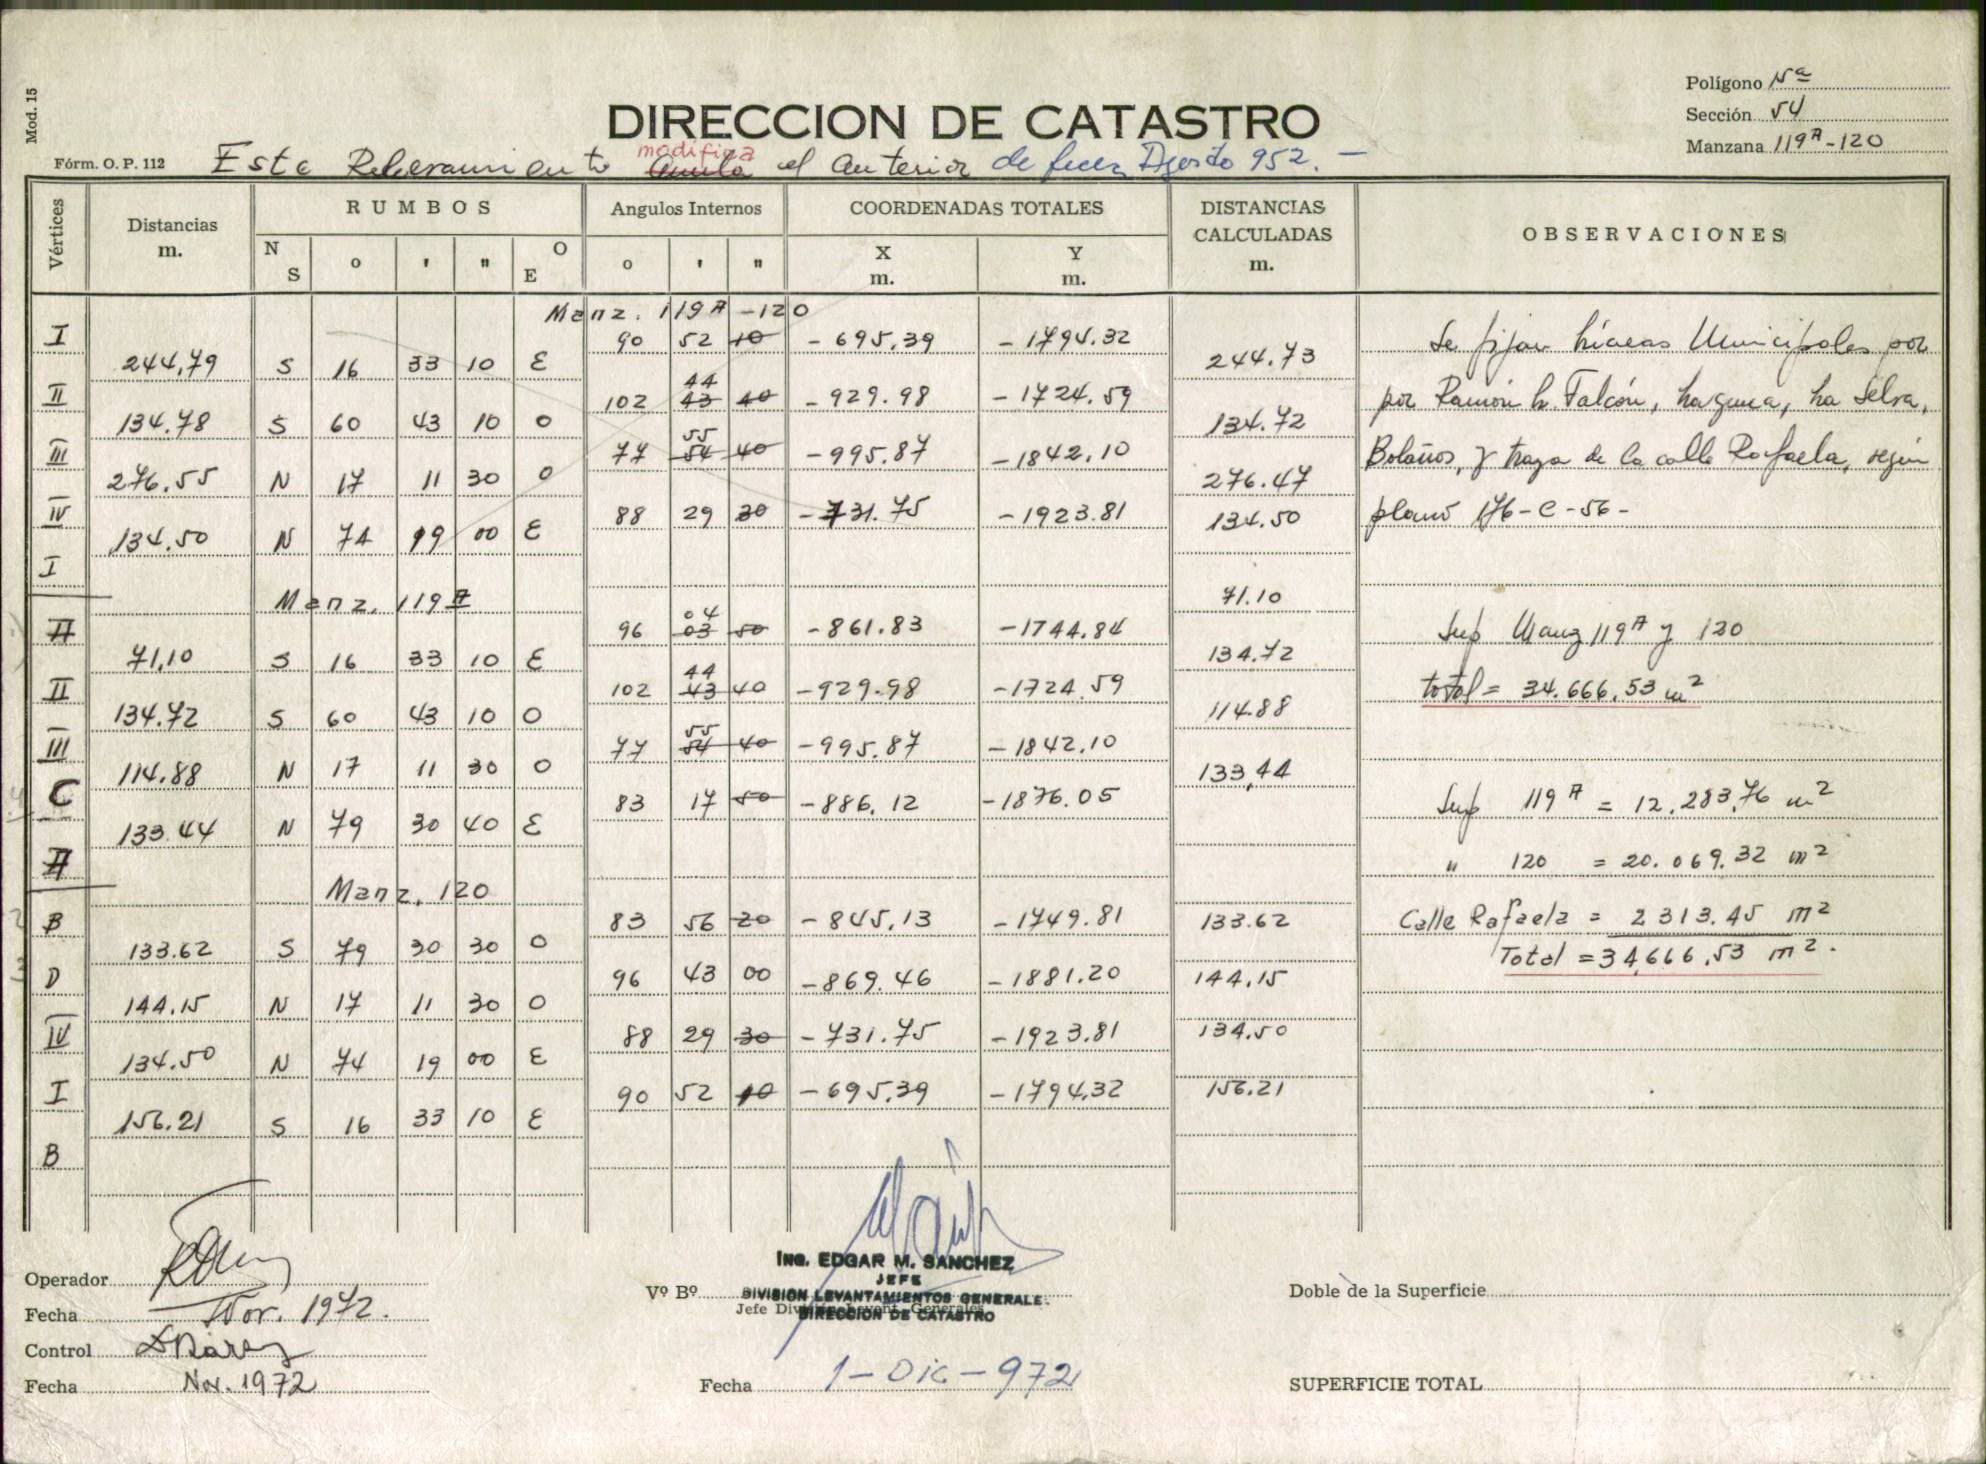 Mod. 15
Polígono 15ª
Sección 54
Manzana 119A-120
DIRECCION DE CATASTRO
Fórm. O. P. 112
Este modifica el anterior de Agosto 952. -
Vértices
Distancias m.
RUMBOS
N S ° ' " O E
Angulos Internos
° ' "
COORDENADAS TOTALES
X m. Y m.
DISTANCIAS CALCULADAS m.
OBSERVACIONES
Manz. 119A-120
I 90 52 10 -695.39 -1794.32
244,79 S 16 33 10 E 244.73
II 102 44 43 40 -929.98 -1724.59
134.78 S 60 43 10 O 134.72
III 77 55 54 40 -995.87 -1842.10
276.55 N 17 11 30 O 276.47
IV 88 29 30 -731.75 -1923.81
134.50 N 74 19 00 E 134.50
I
Manz. 119A
A 96 04 03 50 -861.83 -1744.84
71,10 S 16 33 10 E 71.10
II 102 44 43 40 -929.98 -1724.59
134.72 S 60 43 10 O 134.72
III 77 55 54 40 -995.87 -1842.10
114.88 N 17 11 30 O 114.88
C 83 17 50 -886.12 -1876.05
133.44 N 79 30 40 E 133,44
A
Manz. 120
B 83 56 20 -845,13 -1749.81
133.62 S 79 30 30 O 133.62
D 96 43 00 -869.46 -1881.20
144.15 N 17 11 30 O 144.15
IV 88 29 30 -731.75 -1923.81
134.50 N 74 19 00 E 134.50
I 90 52 10 -695.39 -1794.32
156.21 S 16 33 10 E 156.21
B
Se fijan Líneas Municipales por
por Ramón L. Falcón, Laguna, La Selva,
Bolaños, y traza de la calle Rafaela, según
plano 176-C-56-
Sup Manz 119A y 120
total = 34.666,53 m²
Sup 119A = 12.283,76 m²
" 120 = 20.069.32 m²
Calle Rafaela = 2313.45 m²
Total = 34,666,53 m².
Operador
Fecha Nov. 1972.
Control
Fecha Nov. 1972
Vº Bº
Ing. EDGAR M. SANCHEZ
JEFE
DIVISION LEVANTAMIENTOS GENERALE.
Jefe División Levant. Generales
DIRECCION DE CATASTRO
Fecha 1-Dic-972
Doble de la Superficie
SUPERFICIE TOTAL